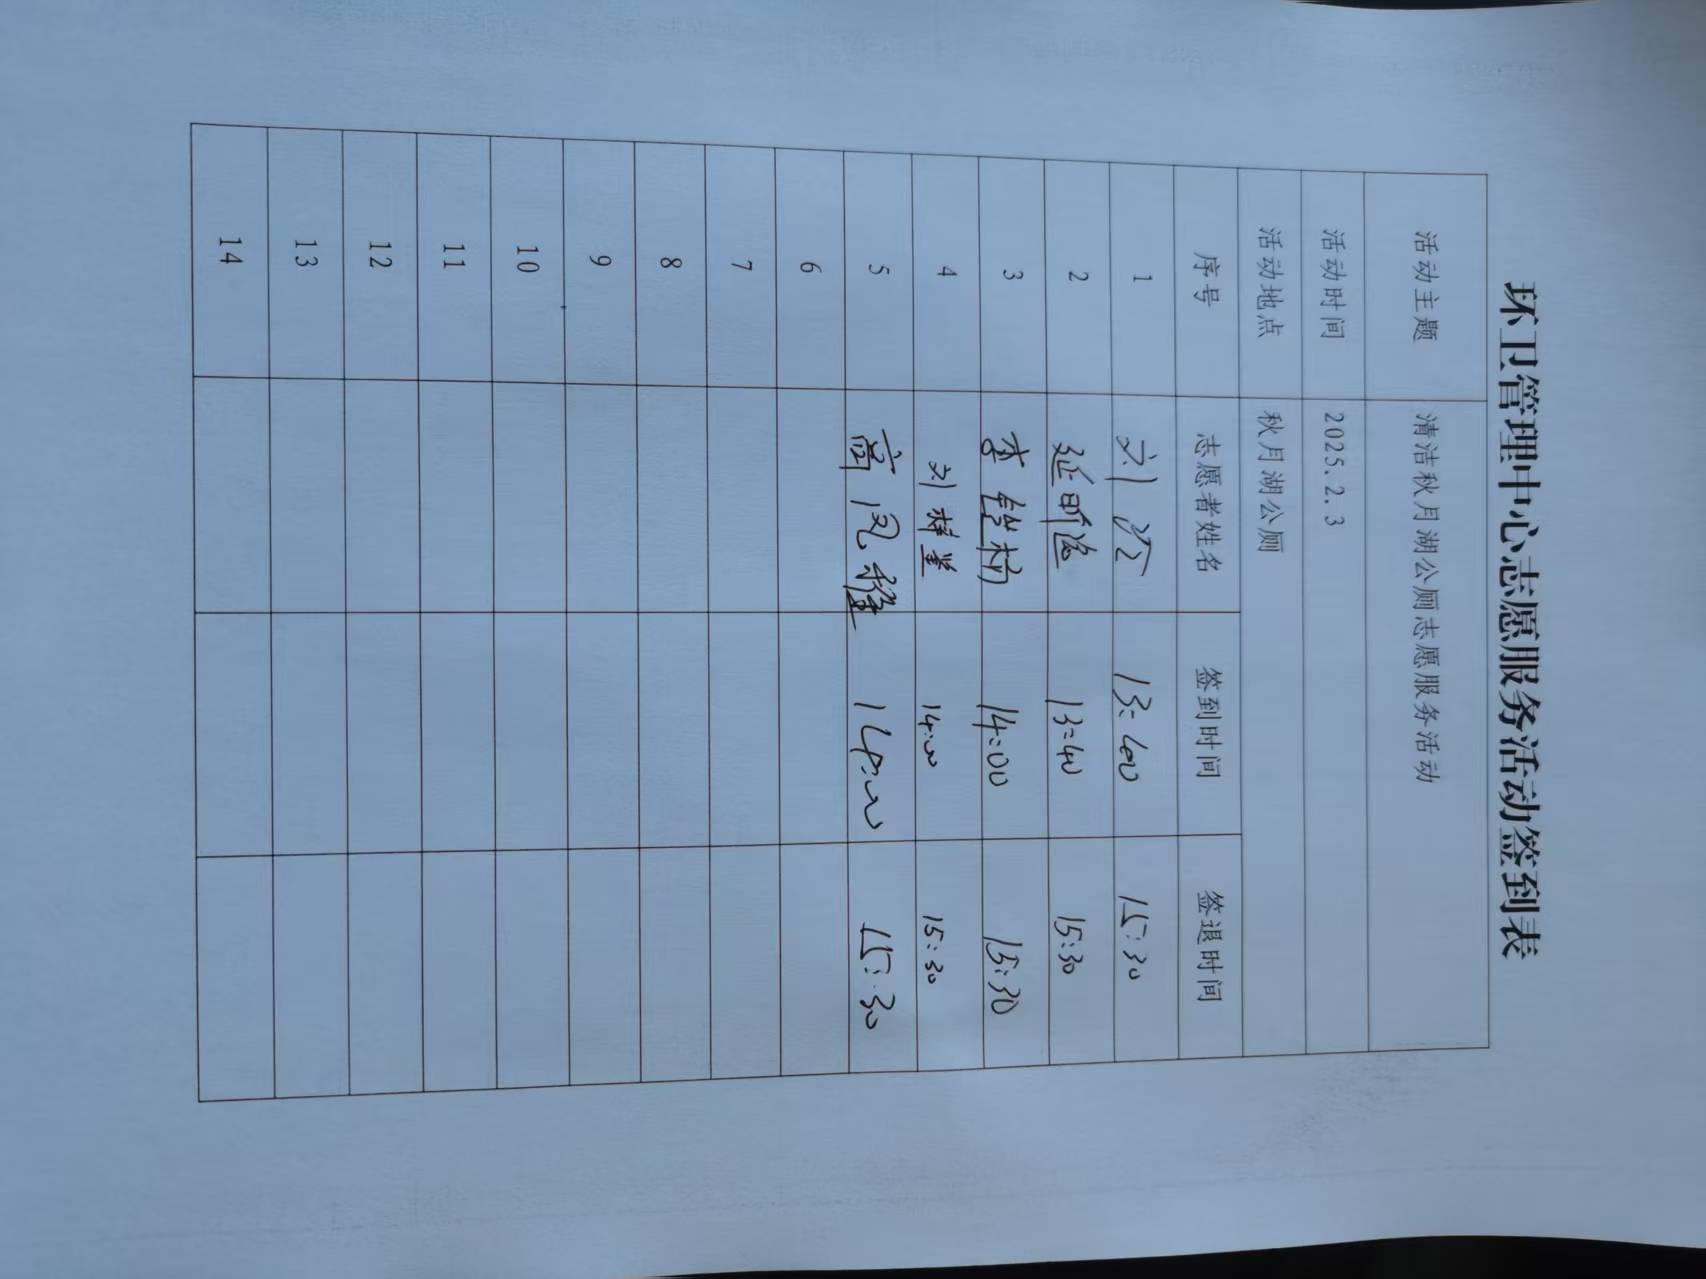 环卫管理中心志愿服务活动签到表
活动主题 清洁秋月湖公厕志愿服务活动
活动时间 2025.2.3
活动地点 秋月湖公厕
序号 志愿者姓名 签到时间 签退时间
1 刘 13:40 15:30
2 延昕 13:40 15:30
3 李 14:00 15:30
4 刘 14:00 15:30
5 高凤 14:00 15:30
6
7
8
9
10
11
12
13
14